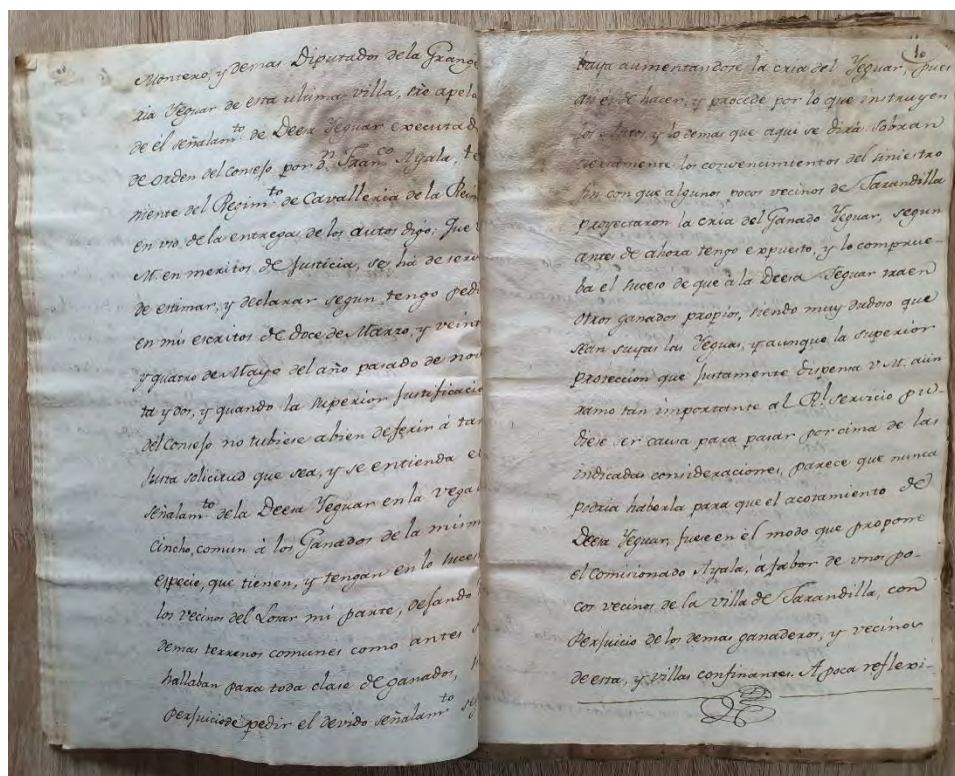 Montero, y demas Diputados dela Grange
ria Yeguar de esta ultima villa, sre apela
de él señalam.to de Deesa Yeguar executad
de orden del Consejo por D.n Fran.co Ayala, te
niente del Regim.to de Cavalleria de la Rein
en vio. de la entrega de los autos digo: Que
M. en meritos de Justicia, se há de servi
de estimar, y declarar segun tengo pedi
en mis escritos de doce de Marzo, y veint
y quatro de Mayo del año pasado de nov
ta y dos, y quando la superior justificacio
del Consejo no tubiese abien deferir á tan
justa solicitud que sea, y se entienda el
señalam.to dela Deesa Yeguar en la vega
cincho, comun á los Ganados de la mism
especie, que tienen, y tengan en lo suces
los vecinos del Losar mi parte, dejando
demas terrenos comunes como antes s
hallaban para toda clase de ganados,
perjuicio de pedir el devido señalam.to
10
baya aumentandose la cria del Yeguar, pues
asi es de hacer, y procede por lo que instruyen
los Autos, y lo demas que aqui se dirá. Sobran
ciertamente los convencimientos del siniestro
fin con que algunos pocos vecinos de Jarandilla
proyectaron la cria del Ganado Yeguar, segun
antes de ahora tengo expuesto, y lo comprue-
ba el suceso de que á la Deesa Yeguar traen
otros ganados propios, siendo muy dudoso que
sean suyas las Yeguas, y aunque la superior
proteccion que justamente dispensa V.M. aún
ramo tan importante al R.l servicio pu-
diese ser causa para pasar por cima de las
indicadas consideraciones, parece que nunca
podria haberla para que el acotamiento de
Deesa Yeguar, fuese en el modo que propone
el comisionado Ayala, á fabor de unos po-
cos vecinos de la villa de Jarandilla, con
perjuicio de los demas ganaderos, y vecinos
de esta, y villas confinantes. A poca reflexi-